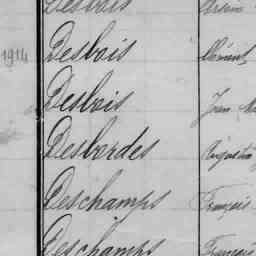 Desbois
1914 Desbois Clément
Desbois Jean
Desbordes Augustin
Deschamps François
Deschamps François